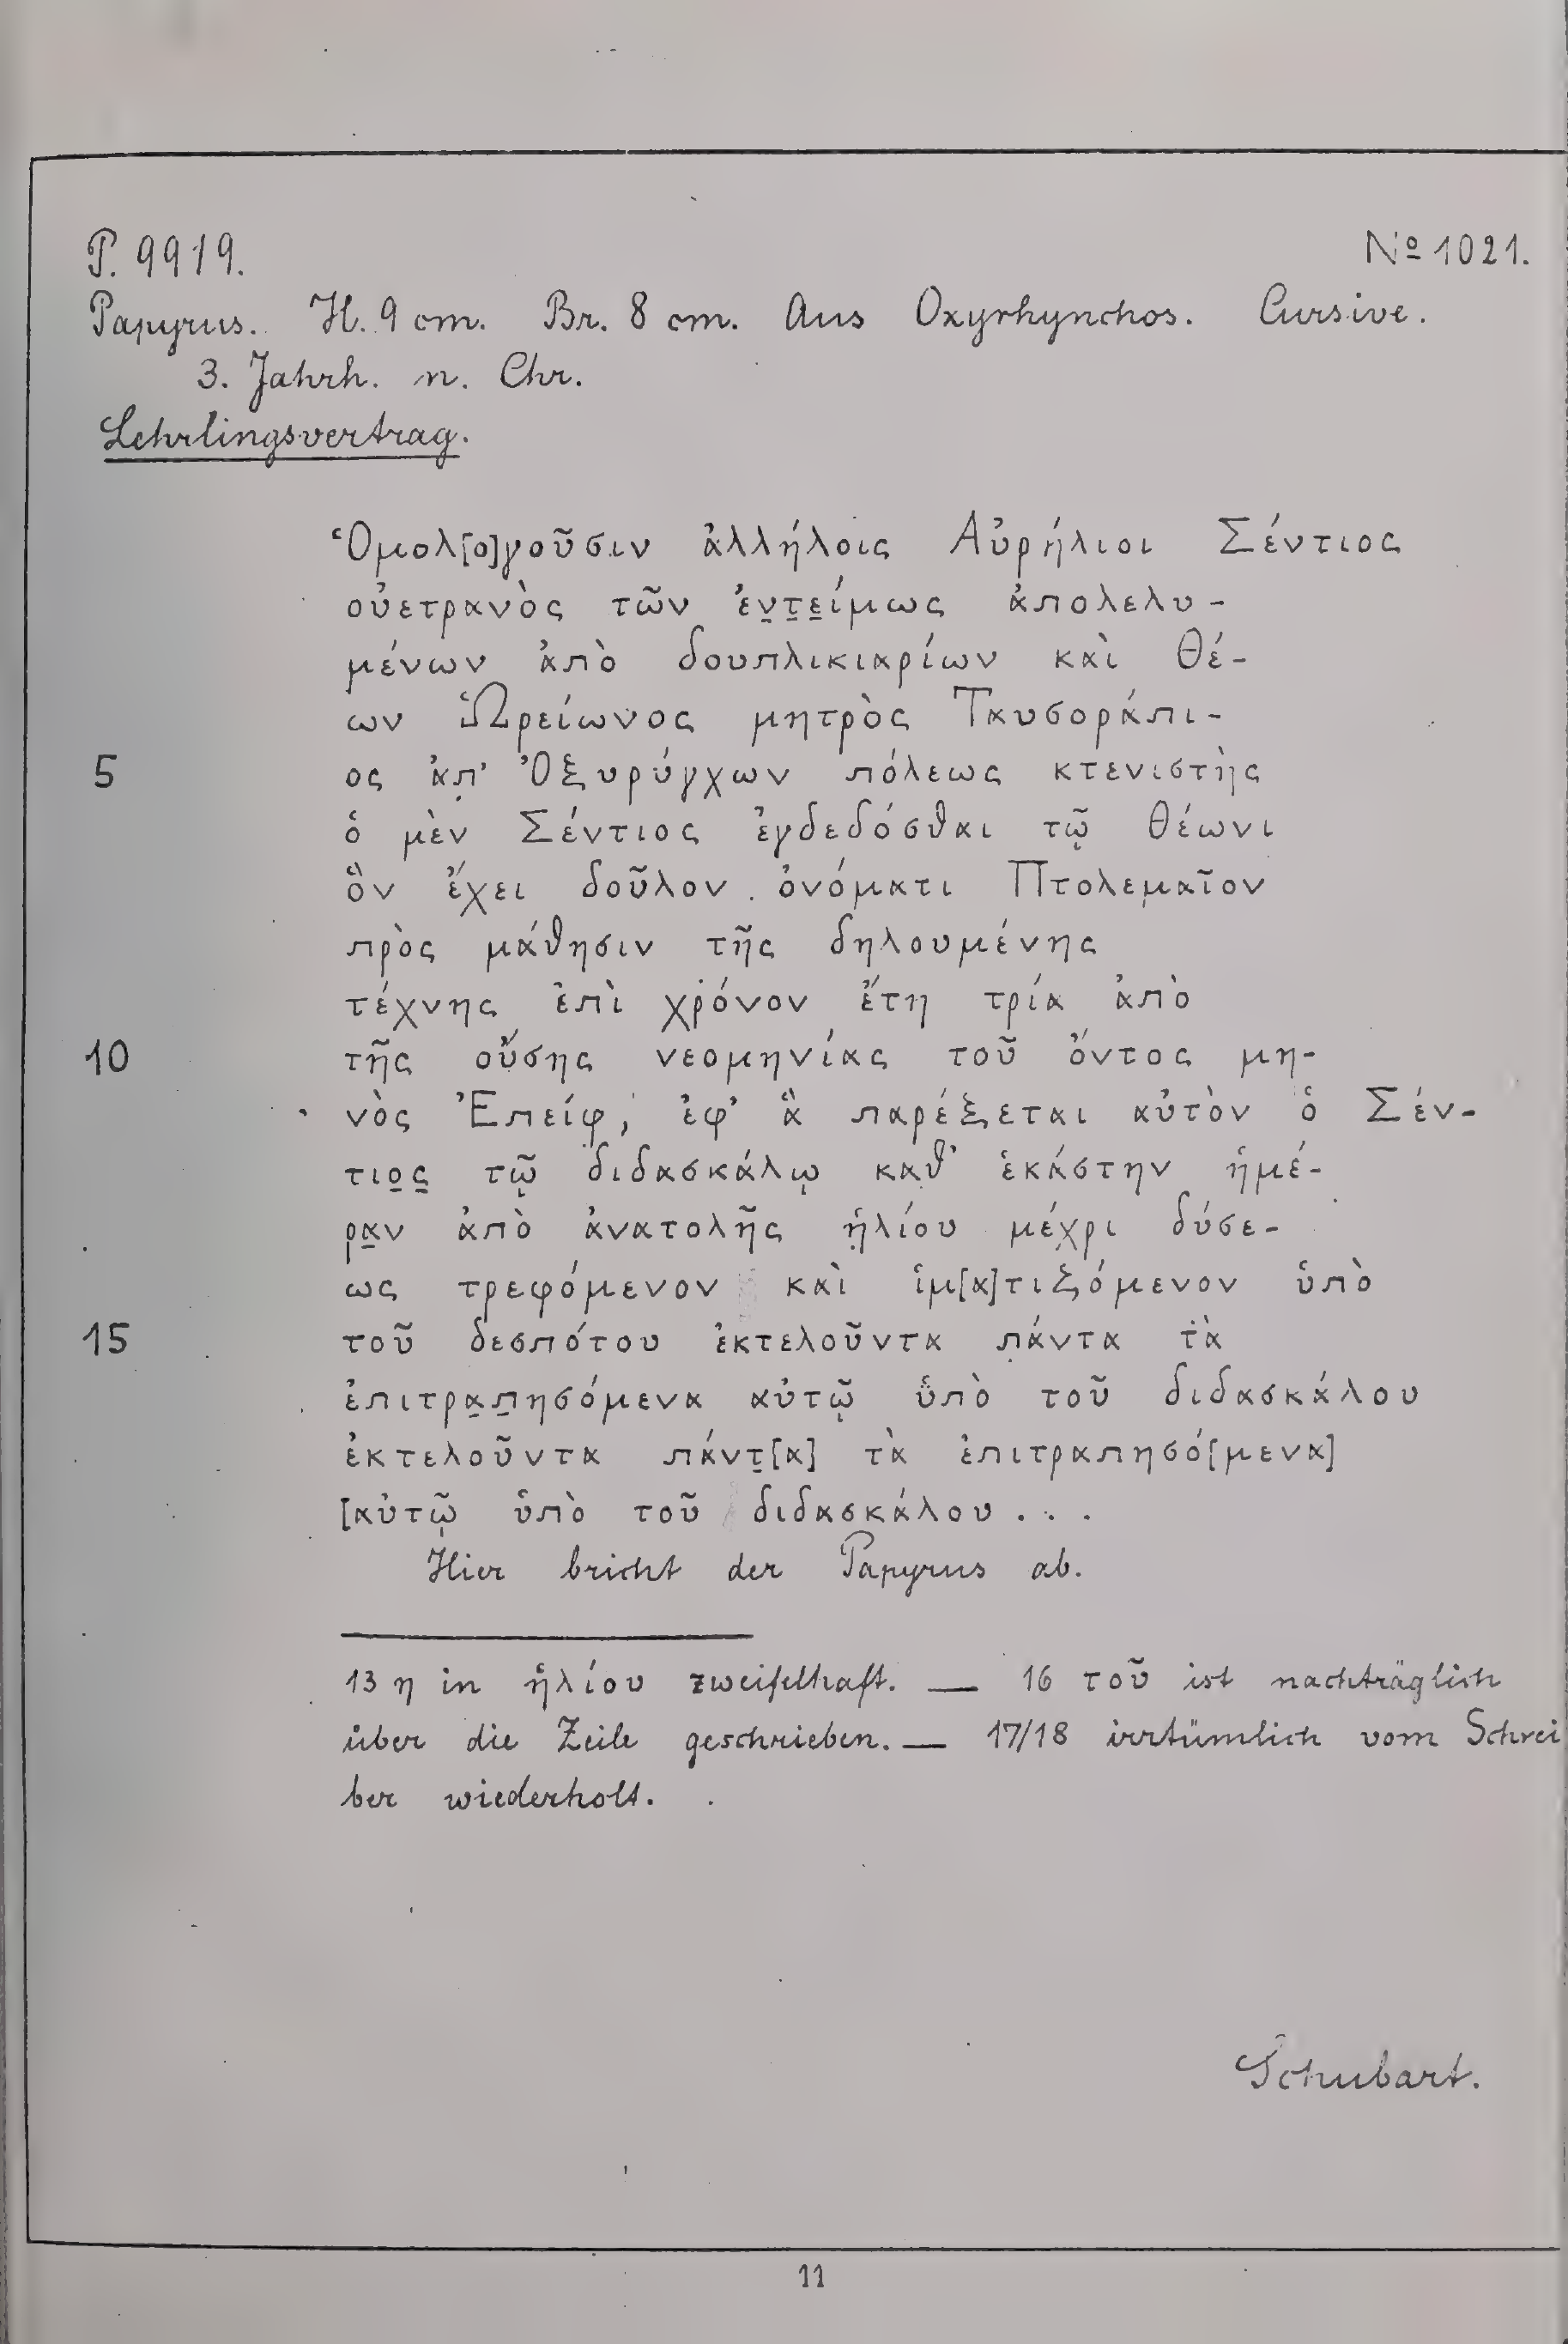 P. 9919. № 1021.
Papyrus. H. 9 cm. Br. 8 cm. Aus Oxyrhynchos. Cursive.
3. Jahrh. n. Chr.
Lehrlingsvertrag.
Ὁμολ[ο]γοῦσιν ἀλλήλοις Αὐρήλιοι Σέντιος
οὐετρανὸς τῶν ἐν̲τ̲ε̲ίμως ἀπολελυ-
μένων ἀπὸ δουπλικιαρίων καὶ Θέ-
ων Ὡρείωνος μητρὸς Ταυσοράπι-
5 ος ἀπ' Ὀξυρύγχων πόλεως κτενιστὴς
ὁ μὲν Σέντιος ἐγδεδόσθαι τῷ Θέωνι
ὃν ἔχει δοῦλον ὀνόματι Πτολεμαῖον
πρὸς μάθησιν τῆς δηλουμένης
τέχνης ἐπὶ χρόνον ἔτη τρία ἀπὸ
10 τῆς οὔσης νεομηνίας τοῦ ὄντος μη-
νὸς Ἐπείφ, ἐφ' ἃ παρέξεται αὐτὸν ὁ Σέν-
τιο̲ς̲ τῷ διδασκάλῳ καθ' ἑκάστην ἡμέ-
ρα̲ν ἀπὸ ἀνατολῆς ἡ̣λίου μέχρι δύσε-
ως τρεφόμενον καὶ ἱμ[α]τιζόμενον ὑπὸ
15 τοῦ δεσπότου ἐκτελοῦντα πάντα τὰ
ἐπιτρα̲π̲ησόμενα αὐτῷ ὑπὸ τοῦ διδασκάλου
ἐκτελοῦντα πάντ̲[α] τὰ ἐπιτραπησό[μενα]
[αὐτῷ ὑπὸ τοῦ διδασκάλου . . .
Hier bricht der Papyrus ab.
13 η in ἡλίου zweifelhaft. — 16 τοῦ ist nachträglich
über die Zeile geschrieben. — 17/18 irrtümlich vom Schrei
ber wiederholt.
Schubart.
11